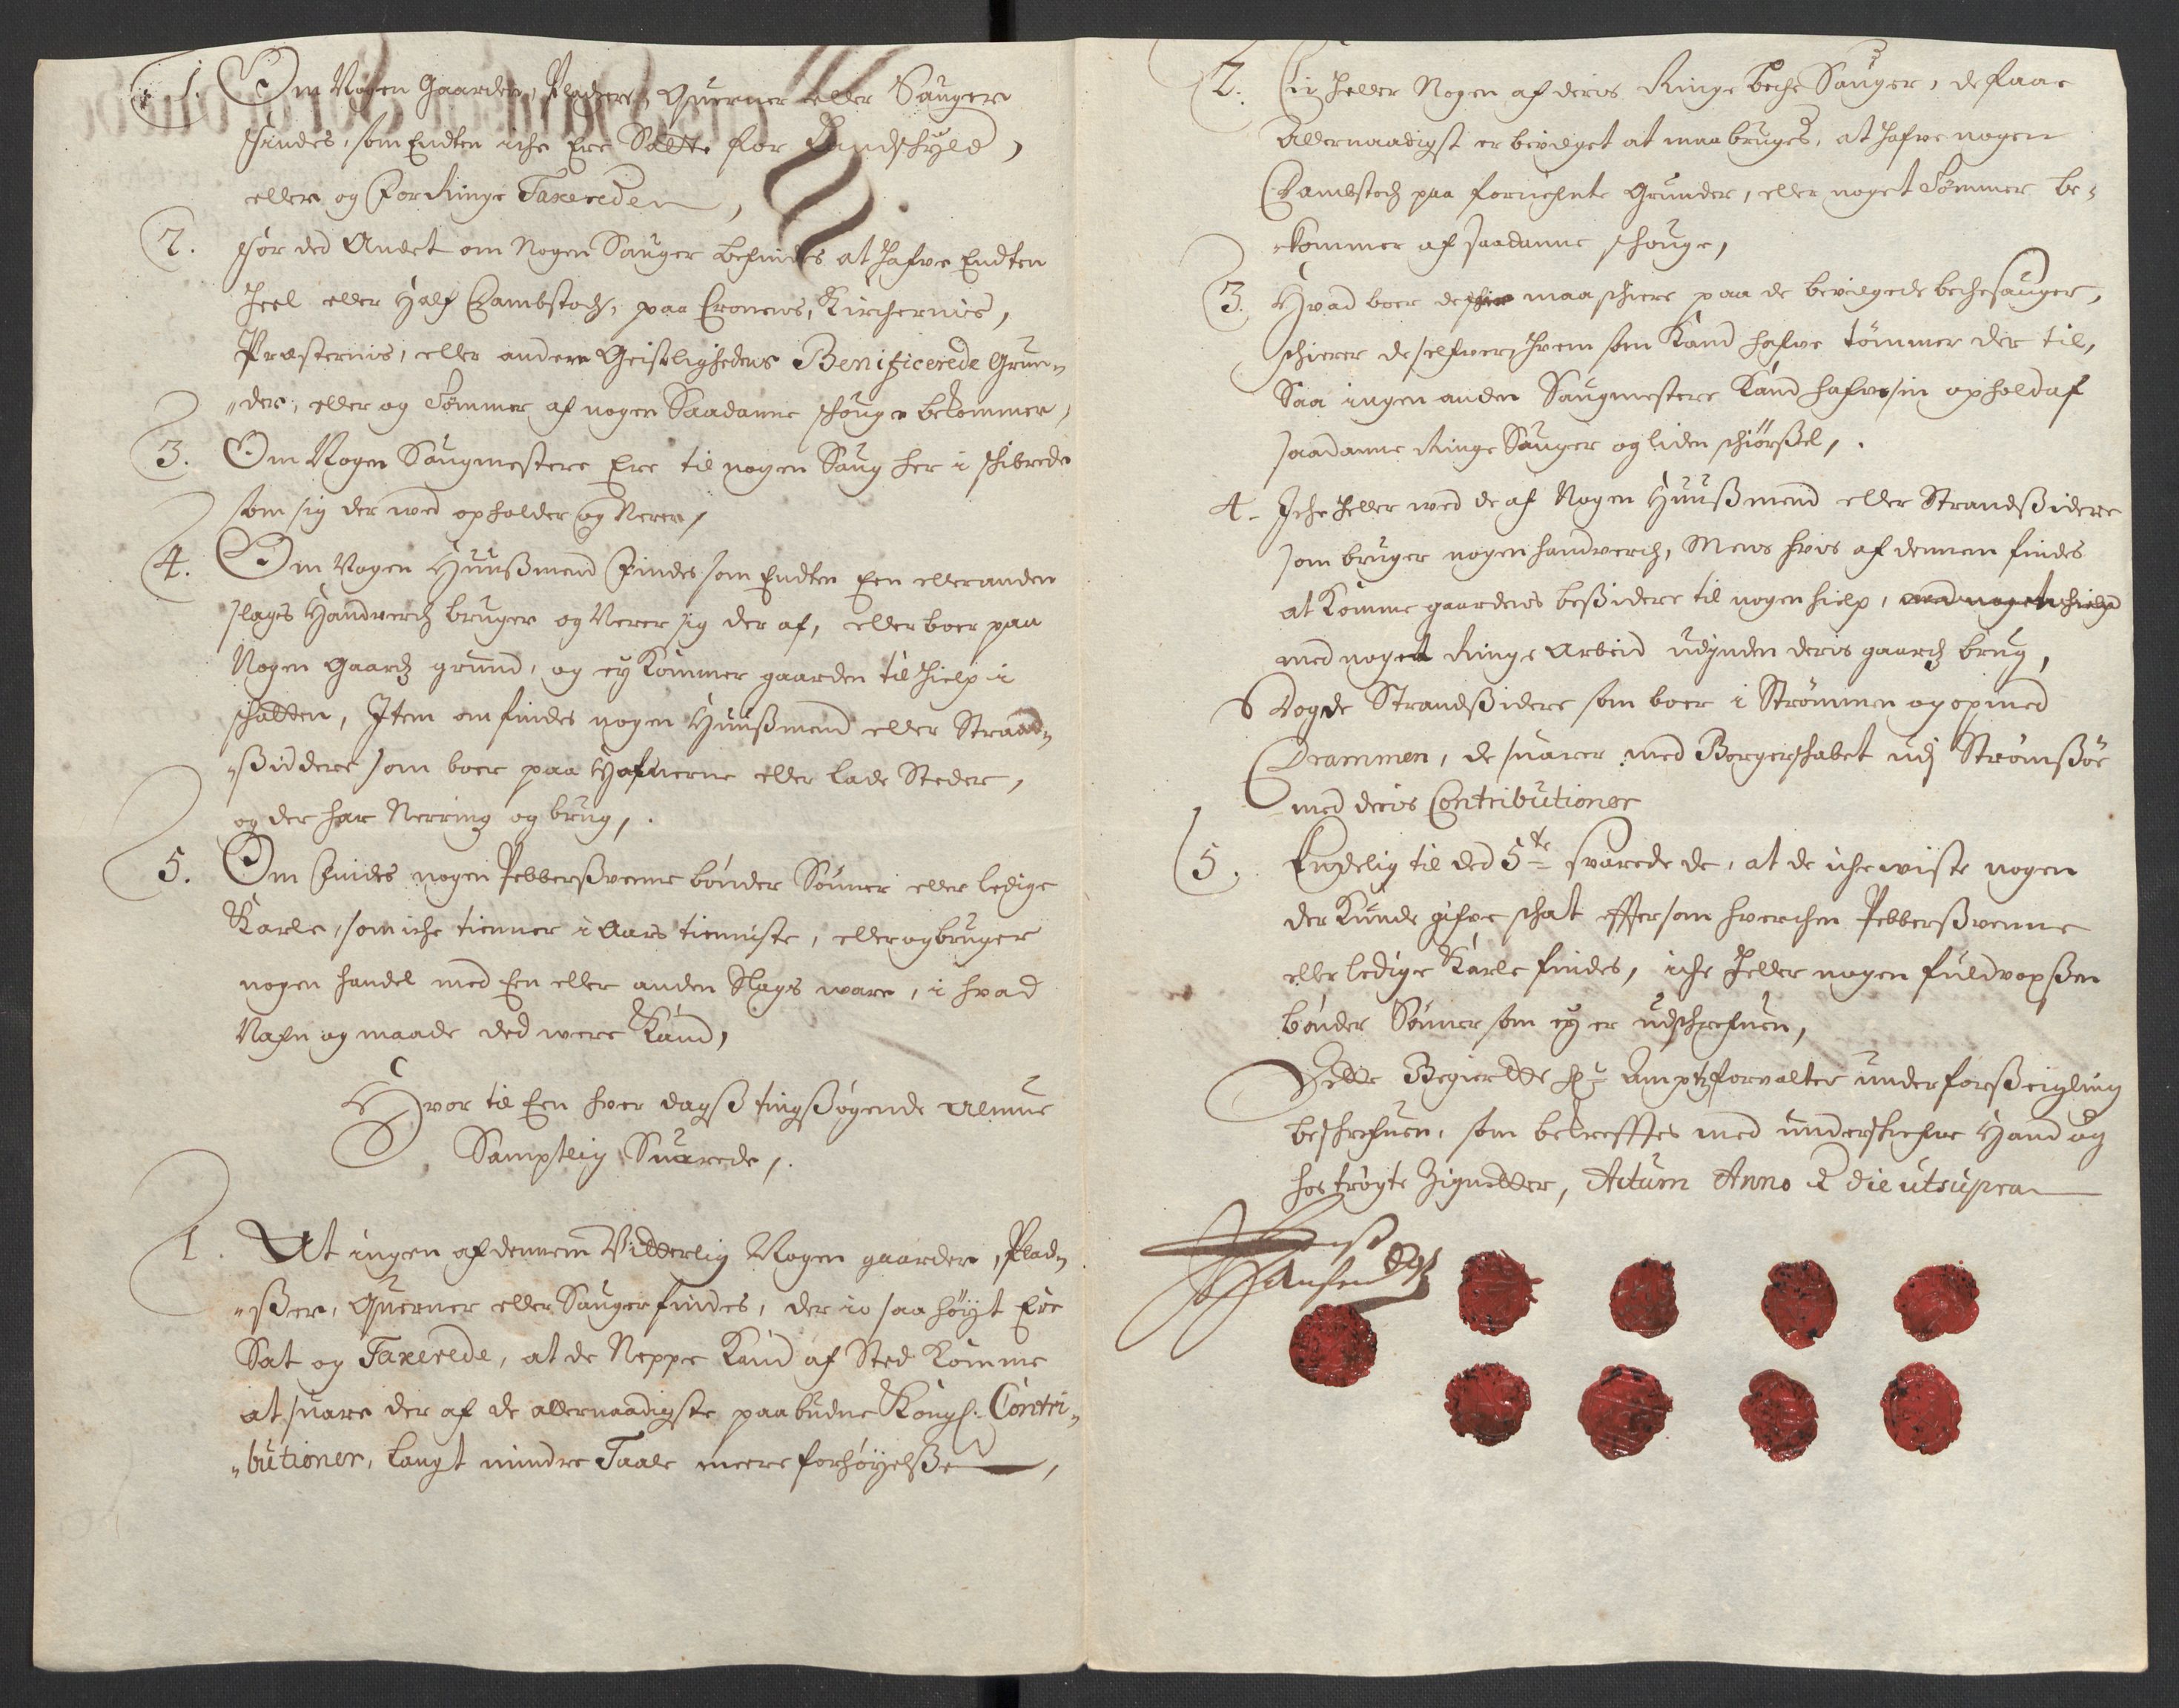 1. Om Nogen Gaarder, Pladser, Querner eller Sauger
findes, som Endten iche Ere Satte for Landschyld,
eller og For Ringe Taxereden,
2. For ded Andet om Nogen Sauger befindes at hafve Endten
heel eller Half Dambstoch, paa Cronens, Kirchernis,
Præsternis, eller andere Geistlighedens Benificerede Grun„
„der, eller og Tømmer af nogen Saadanne schouge bekommer,
3. Om Nogen Saugmestere Ere til nogen Saug her i schibrede
som sig der wed opholder og Nerer,
4. Om Nogen Huußmend Findes som Endten Een eller anden
slags Handverch bruger og Nerer sig der af, eller boer paa
Nogen Gaardz grund, og ey kommer gaarden til hielp i
schatten, Item om findes nogen Huußmend eller Strand„
„ßiddere som boer paa Hafnerne eller lade Steder,
og der har Nerring og brug,.
5. Om Findes nogen Pebberßvenne bønder Sønner eller ledige
Karle, som iche tienner i Aars tienniste, eller og bruger
nogen handel med Een eller anden Slags ware, i hvad
Nafn og maade ded were Kand,
Hvor til Een hver dagß tingßøgende Almue
Samptlig Suarede,.
1. At ingen af dennem Vitterlig Nogen gaarder, Plad„
„ßer, Querner eller Sauger findes, der io saa høyt Ere
Sat og Taxerede, at de Neppe Kand af Sted komme
at suare der af de allernaadigste paabudne Kongl: Contri„
„butioner, langt mindre Taale meere forhøyelße,
2. Ei heller Nogen af deris Ringe beche Sauger, de faae
Allernaadigst er bevilget at maa bruges, at hafve nogen
Dambstoch paa fornefnte Grunder, eller noget Tømmer be„
„kommer af saadanne schouge,
3. Hvad boer de schier maa schiere paa de bevilgede bechesauger,
schierer de selfver, hvem som Kand hafve tømmer der til,
Saa ingen anden Saugmestere Kand hafve sin ophold af
saadanne Ringe Sauger og liden schiørßel,.
4. Iche heller wed de af Nogen Huußmend eller Strandßidere
som bruger nogen handverch, Mens hvis af dennem findes
at Komme gaardens beßidere til nogen hielp, med nogen hielp
med noget Ringe arbeid udynden deris gaardz brug,
Dog de Strandßidere som boer i Strømmen og op med
Drammen, de suarer med Borgerschabet udj Strømßøe
med deris Contributioner
5. Endelig til ded 5te svarede de, at de iche wiste nogen
der Kunde gifve schat effter som hverchen Pebberßvenne
eller ledige Karle findes, iche heller nogen fuldvoxßen
bønder Sønner som ey er udschrefuen,
Dette Begierdte Hr Amptzforvalter under forßeigling
beschrefuen, som bekrefftes med underschrefne Hand og
hos trøgte Zignetter, Actum Anno et die utsupra
Hansen